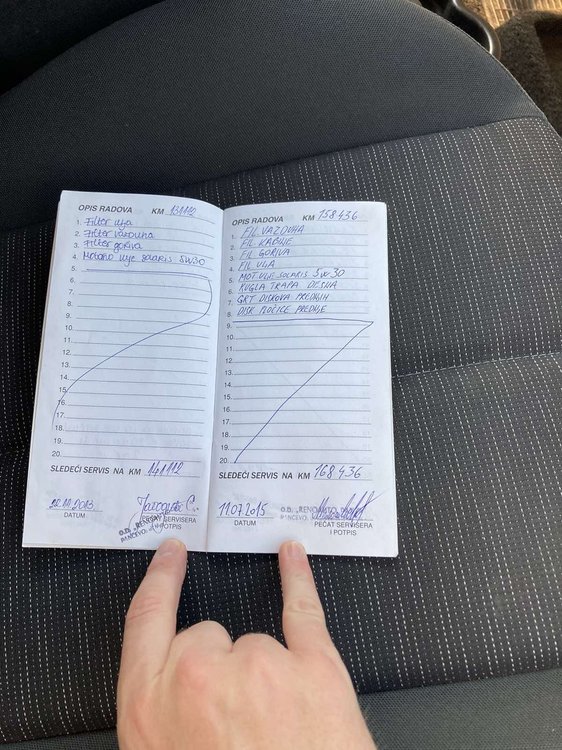 OPIS RADOVA KM 131112
1. Filter ulja
2. Filter vazduha
3. Filter goriva
4. Motorno ulje solaris 5W30
5.
6.
7.
8.
9.
10.
11.
12.
13.
14.
15.
16.
17.
18.
19.
20.
SLEDEĆI SERVIS NA KM 141112
22.10.2013.
DATUM
SERVISERA
I POTPIS
PANČEVO
OPIS RADOVA KM 158436
1. FIL VAZDUHA
2. FIL KABINE
3. FIL GORIVA
4. FIL ULJA
5. MOT. ULJE SOLARIS 5W30
6. KUGLA TRAPA DESNA
7. GRT DISKOVA PREDNJIH
8. DISK PLOČICE PREDNJE
9.
10.
11.
12.
13.
14.
15.
16.
17.
18.
19.
20.
SLEDEĆI SERVIS NA KM 168436
11.07.2015
DATUM
O.D. „RENOAUTO
PANČEVO,
PEČAT SERVISERA
I POTPIS